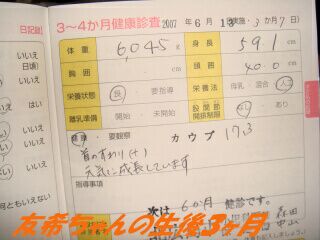 日記録
3〜4か月健康診査 2007年6月13日実施・3か月7日)
いいえ
日頃)
体重 6045g 身長 59.1cm
いいえ
胸囲 cm 頭囲 40.0cm
いいえ
栄養状態 良・要指導 栄養法 母乳・混合・人工
離乳準備 開始・未開始 股関節開排制限 なし・あり
いいえ
健康・要観察 カウプ 17.3
いいえ
首のすわり(+)
元気に成長しています
いいえ
指導事項
何ともいえない
次は6か月健診です。
森田
友希ちゃんの生後3ヶ月